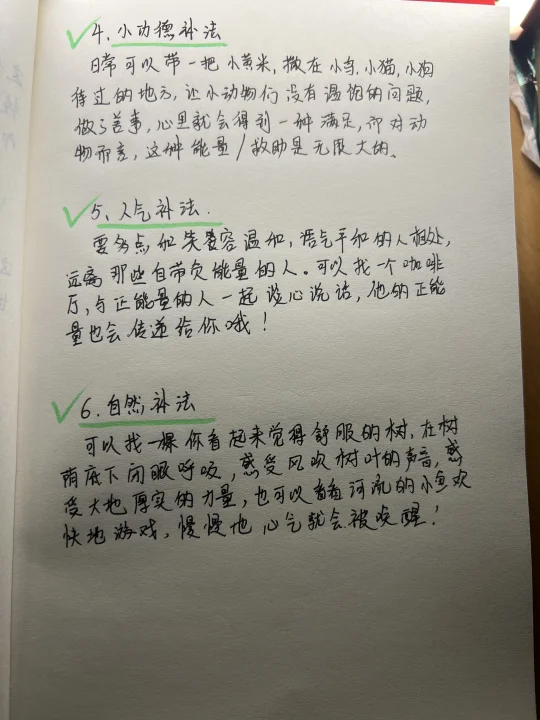 4. 小功德补法
日常可以带一把小黄米,撒在小鸟,小猫,小狗
待过的地方,让小动物们没有温饱的问题,
做了善事,心里就会得到一种满足,而对动
物而言,这种能量/救助是无限大的。
5. 人气补法.
要多点和笑容温和,语气平和的人相处,
远离那些自带负能量的人。可以找一个咖啡
厅,与正能量的人一起谈心说话,他的正能
量也会传递给你哦!
6. 自然补法
可以找一棵你看起来觉得舒服的树,在树
荫底下闭眼呼吸,感受风吹树叶的声音,感
受大地厚实的力量,也可以看看河流的小鱼欢
快地游戏,慢慢地心气就会被唤醒!